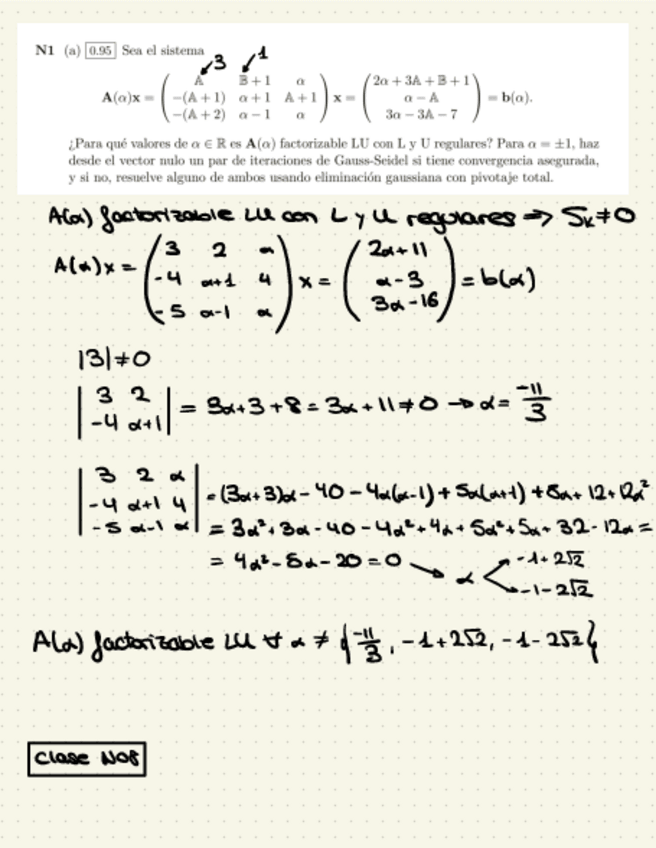 N1 (a) 0.95 Sea el sistema
3 1
A(α)x = ( A B + 1 α ; −(A + 1) α + 1 A + 1 ; −(A + 2) α − 1 α ) x = ( 2α + 3A + B + 1 ; α − A ; 3α − 3A − 7 ) = b(α).
¿Para qué valores de α ∈ ℝ es A(α) factorizable LU con L y U regulares? Para α = ±1, haz
desde el vector nulo un par de iteraciones de Gauss-Seidel si tiene convergencia asegurada,
y si no, resuelve alguno de ambos usando eliminación gaussiana con pivotaje total.
A(α) factorizable LU con L y U regulares ⇒ Sk ≠ 0
A(α) x = ( 3 2 α ; -4 α+1 4 ; -5 α-1 α ) x = ( 2α+11 ; α-3 ; 3α-16 ) = b(α)
|3| ≠ 0
| 3 2 ; -4 α+1 | = 3α+3+8 = 3α+11 ≠ 0 → α = -11/3
| 3 2 α ; -4 α+1 4 ; -5 α-1 α | = (3α+3)α - 40 - 4α(α-1) + 5α(α+1) + 8α + 12 + 12α²
= 3α² + 3α - 40 - 4α² + 4α + 5α² + 5α + 32 - 12α =
= 4α² - 8α - 20 = 0 → α < -1+2√2
-1-2√2
A(α) factorizable LU ∀ α ≠ { -11/3, -1+2√2, -1-2√2 }
Clase N08